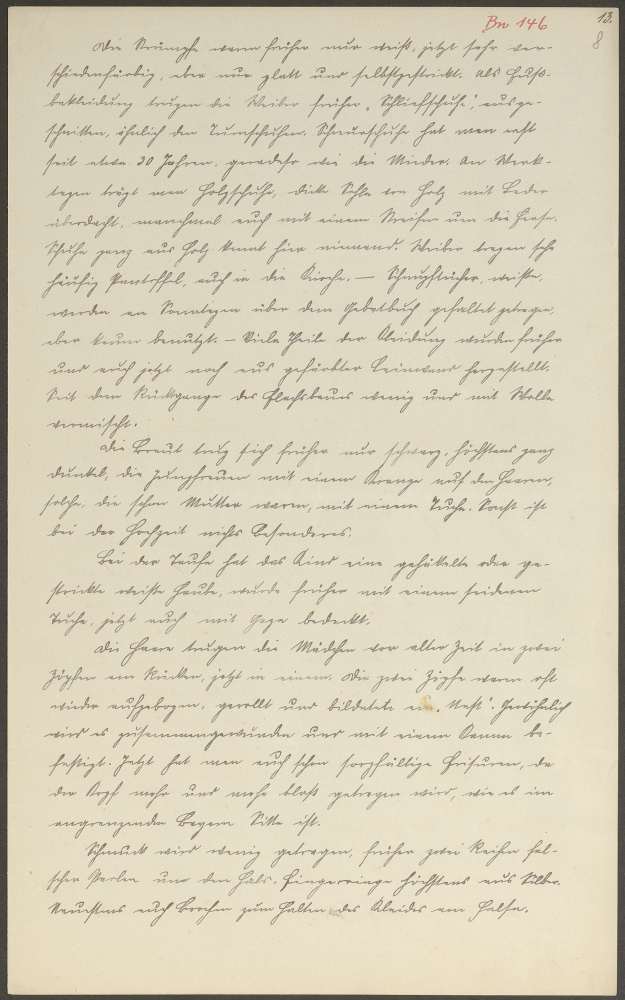 Bn 146
13.
8
Die Strümpfe waren früher nur weiß, jetzt sehr ver-
schiedenfärbig, aber nur glatt und selbstgestrickt. Als Fuß-
bekleidung trugen die Weiber früher „Schliefschuhe", ausge-
schnitten, ähnlich den Turnschuhen. Schnürschuhe hat man erst
seit etwa 30 Jahren, geradeso wie die Mieder. An Werk-
tagen trägt man Holzschuhe, dicke Sohle von Holz mit Leder
überdacht, manchmal auch mit einem Streifen um die Ferse.
Schuhe ganz aus Holz kennt hier niemand. Weiber tragen sehr
häufig Pantoffel, auch in die Kirche. — Schnupftücher, weiße,
werden an Sonntagen über dem Gebetbuch gefaltet getragen,
aber kaum benutzt. — Viele Theile der Kleidung wurden früher
und auch jetzt noch aus gefärbter Leinwand hergestellt.
Seit dem Rückgange des Flachsbaues wenig und mit Wolle
vermischt.
Die Braut trug sich früher nur schwarz, höchstens ganz
dunkel, die Jungfrauen mit einem Kranze auf den Haaren,
solche, die schon Mutter waren, mit einem Tuche. Sonst ist
bei der Hochzeit nichts Besonderes.
Bei der Taufe hat das Kind eine gehäkelte oder ge-
strickte weiße Haube, wurde früher mit einem seidenen
Tuche, jetzt auch mit Gaze bedeckt.
Die Haare trugen die Mädchen vor alter Zeit in zwei
Zöpfen am Rücken, jetzt in einem. Die zwei Zöpfe waren oft
wieder aufgebogen, gerollt und bildeten ein „Nest". Gewöhnlich
wird es zusammengewunden und mit einem Kamm be-
festigt. Jetzt hat man auch schon sorgfältige Frisuren, da
der Kopf mehr und mehr bloß getragen wird, wie es im
angrenzenden Bayern Sitte ist.
Schmuck wird wenig getragen, früher zwei Reihen fal-
scher Perlen um den Hals. Fingerringe höchstens aus Silber.
Neuestens auch Brochen zum Halten des Kleides am Halse.